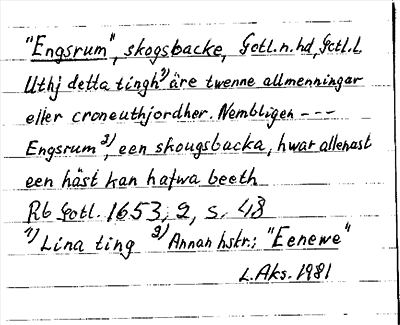 "Engsrum", skogsbacke, Gotl.n.hd, Gotl.L
Uthj detta tingh¹⁾ äre twenne allmenningar
eller croneuthjordher. Nembligen ---
Engsrum²⁾, een skougsbacka, hwar allenast
een häst kan hafwa beeth
Rb Gotl. 1653; 2, s. 48
¹⁾ Lina ting ²⁾ Annan hstr.; "Eenewe"
L.Aks. 1981